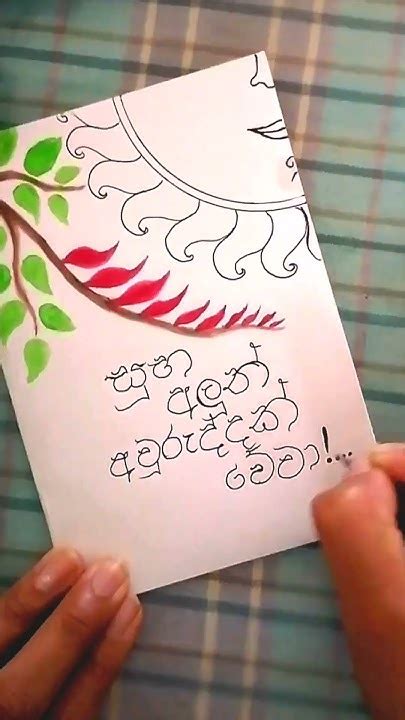 සුභ
අලුත්
අවුරුද්දක්
වේවා!...